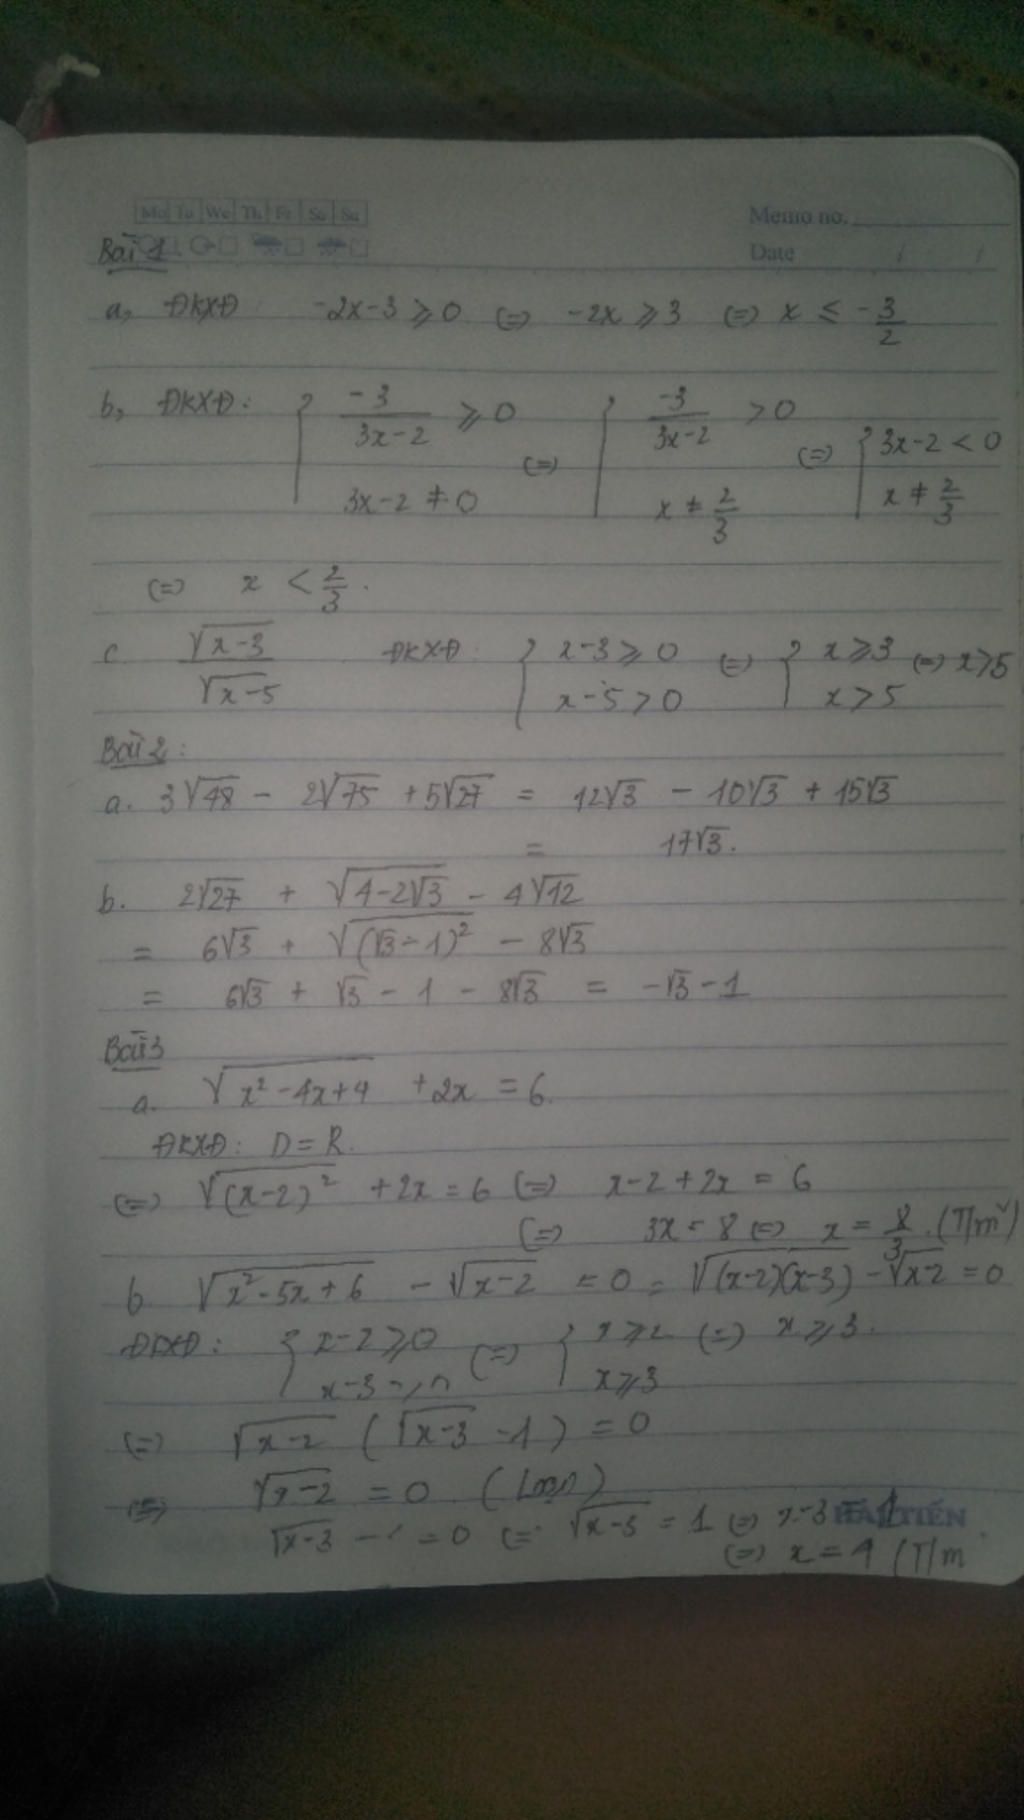 Mo Tu We Th Fr Sa Su
Memo no.
Date / /
Bài 1
a, ĐKXĐ -2x-3 ≥ 0 (=) -2x ≥ 3 (=) x ≤ -3/2
b, ĐKXĐ: { -3/(3x-2) ≥ 0 ; 3x-2 ≠ 0 (=) { -3/(3x-2) > 0 ; x ≠ 2/3 (=) { 3x-2 < 0 ; x ≠ 2/3
(=) x < 2/3.
c. √(x-3)/√(x-5) ĐKXĐ: { x-3 ≥ 0 ; x-5 > 0 (=) { x ≥ 3 ; x > 5 (=) x > 5
Bài 2:
a. 3√48 - 2√75 + 5√27 = 12√3 - 10√3 + 15√3
= 17√3.
b. 2√27 + √(4-2√3) - 4√12
= 6√3 + √((√3-1)²) - 8√3
= 6√3 + √3 - 1 - 8√3 = -√3 - 1
Bài 3
a. √(x²-4x+4) + 2x = 6.
ĐKXĐ: D = R.
(=) √((x-2)²) + 2x = 6 (=) x-2+2x = 6
(=) 3x = 8 (=) x = 8/3. (T/m)
b √(x²-5x+6) - √(x-2) = 0 = √((x-2)(x-3)) - √(x-2) = 0
ĐKXĐ: { x-2 ≥ 0 ; x-3 ≥ 0 (=) { x ≥ 2 ; x ≥ 3 (=) x ≥ 3.
(=) √(x-2) (√(x-3) - 1) = 0
(=) √(x-2) = 0 (Loại)
√(x-3) - 1 = 0 (=) √(x-3) = 1 (=) x-3 = 1
HẢI TIẾN
(=) x = 4 (T/m